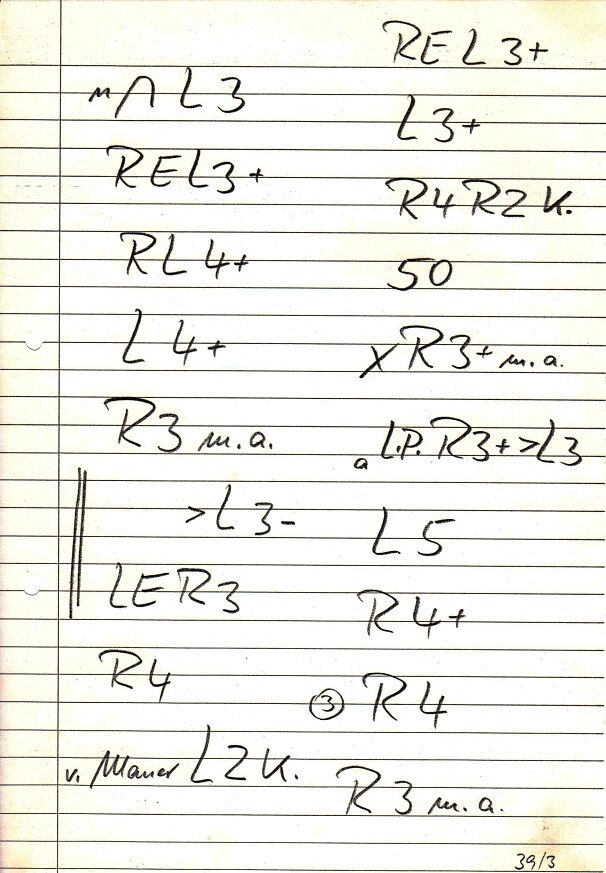 m ∩ L 3
REL3+
RL 4+
L 4+
R3 m.a.
>L 3-
LER3
R4
v. Mauer L 2 K.
REL 3+
L 3+
R4 R2 K.
50
X R3+ m.a.
a L.P. R3+ >L3
L 5
R 4+
③ R4
R 3 m.a.
39/3